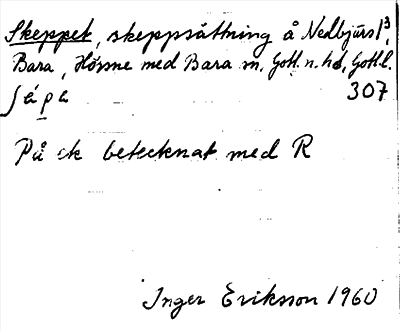 Skeppet, skeppsättning å Nedbjärs 1³,
Bara, Hörsne med Bara sn, Gotl. n. hd, Gotl. l.
307
På ek betecknat med R
Inger Eriksson 1960